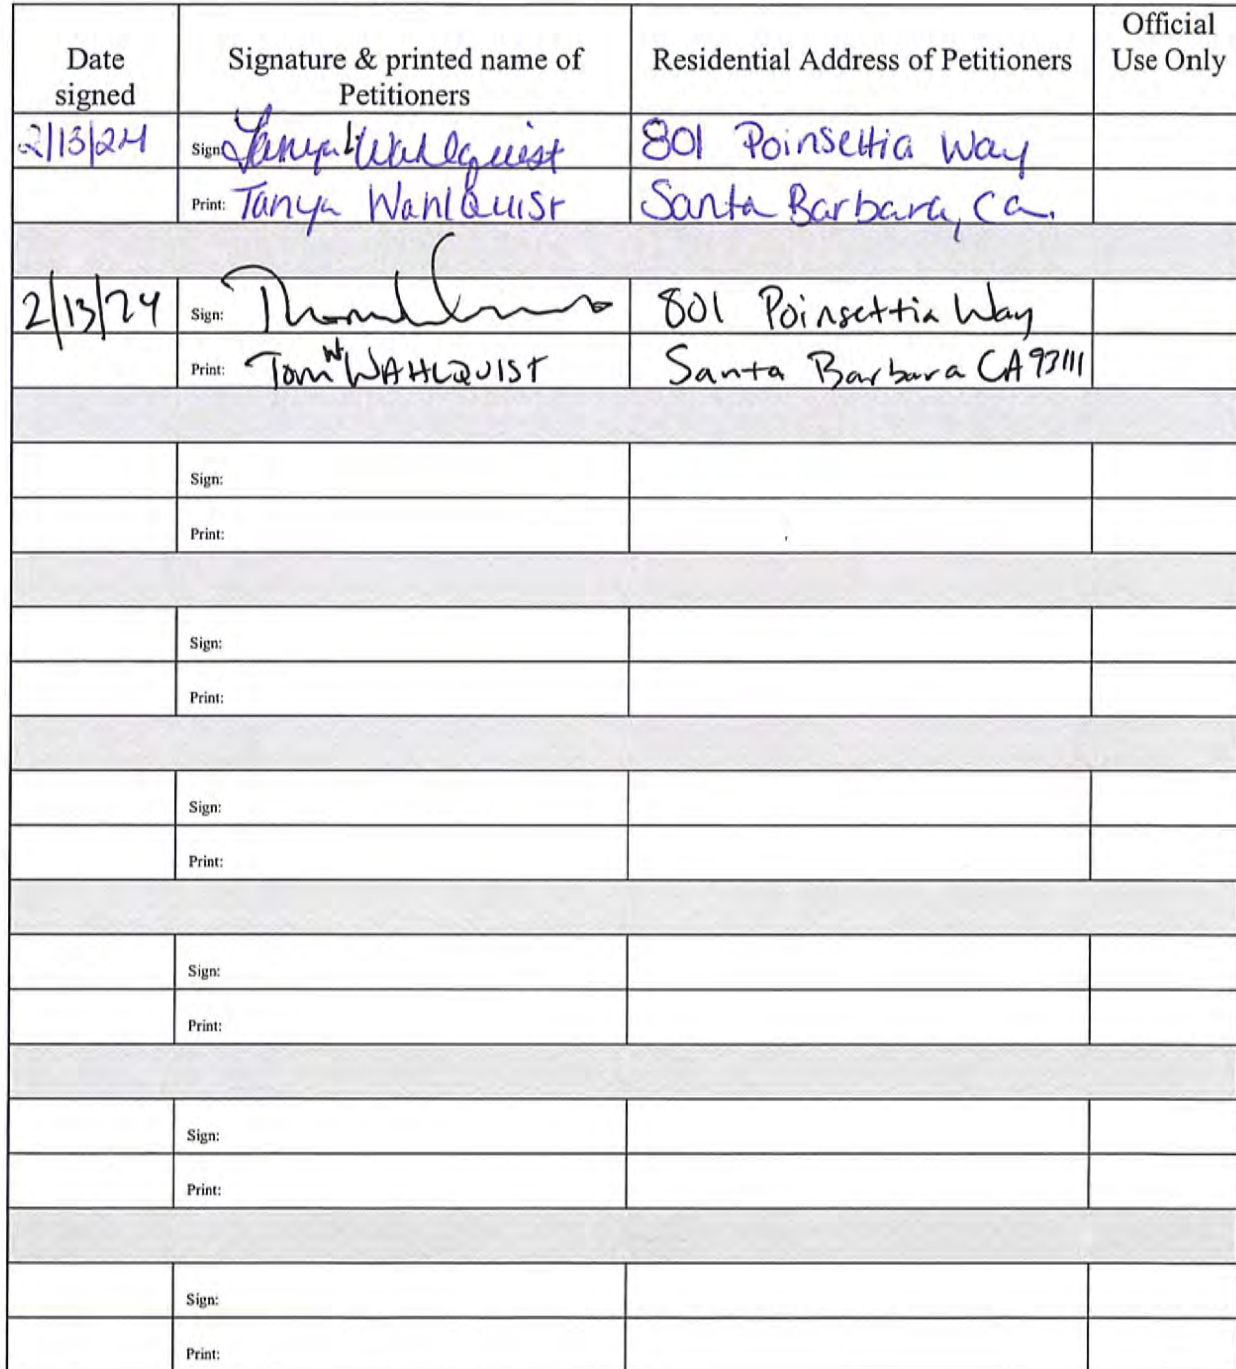 Date signed
Signature & printed name of Petitioners
Residential Address of Petitioners
Official Use Only
2/13/24 Sign: Tanya L Wahlquist 801 Poinsettia Way
Print: Tanya WahlQuist Santa Barbara, Ca.
2/13/24 Sign: 801 Poinsettia Way
Print: Tom W WAHLQUIST Santa Barbara CA 93111
Sign:
Print:
Sign:
Print:
Sign:
Print:
Sign:
Print:
Sign:
Print:
Sign:
Print: